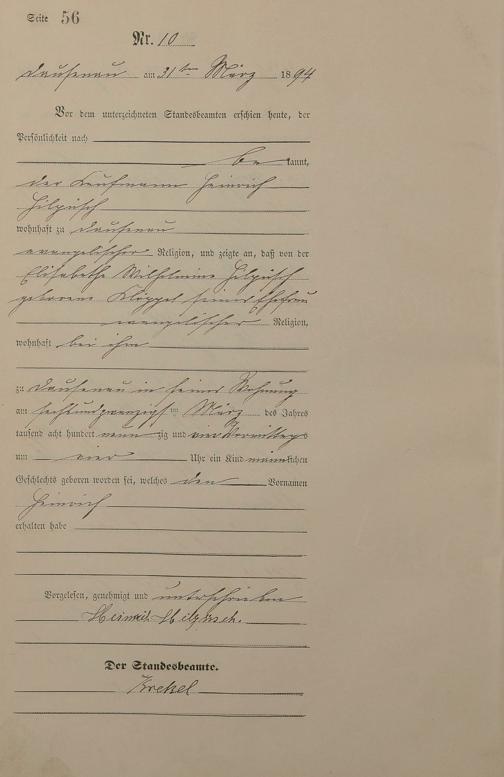 Seite 56
Nr. 10
Dausenau am 31ten März 1894
Vor dem unterzeichneten Standesbeamten erschien heute, der
Persönlichkeit nach
be kannt,
der Kaufmann Heinrich
Hilpüsch
wohnhaft zu Dausenau
evangelischer Religion, und zeigte an, daß von der
Elisabethe Wilhelmine Hilpüsch
geborene Klöppel seiner Ehefrau
evangelischer Religion,
wohnhaft bei ihm
zu Dausenau in seiner Wohnung
am sechsundzwanzigsten März des Jahres
tausend acht hundert neun zig und vier Vormittags
um vier Uhr ein Kind männlichen
Geschlechts geboren worden sei, welches den Vornamen
Heinrich
erhalten habe
Vorgelesen, genehmigt und unterschrieben
Heinrich Hilpüsch.
Der Standesbeamte.
Krekel